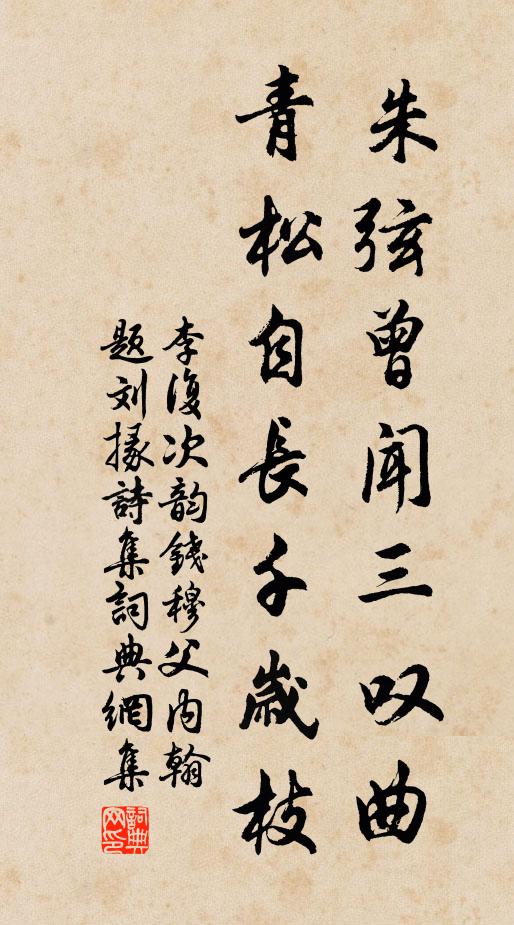 朱弦曾闻三叹曲
青松自長千歲枝
李復次韵錢穆父内翰
题刘掾詩集詞典網集
詞典网印